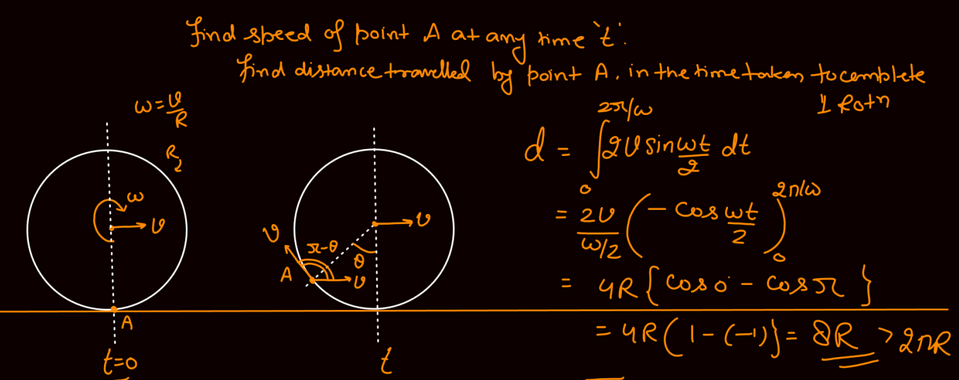 Find speed of point A at any time 't'.
Find distance travelled by point A. in the time taken to complete
1 Rotn
ω = v/R
R
ω
v
A
t=0
v
π-θ
θ
A
v
v
t
d = ∫₀^{2π/ω} 2v sin ωt/2 dt
= 2v/(ω/2) (- cos ωt/2)₀^{2π/ω}
= 4R { cos 0 - cos π }
= 4R ( 1 - (-1) } = 8R > 2πR